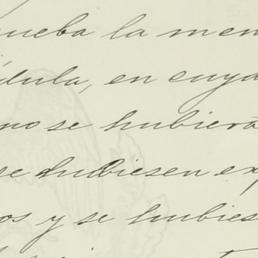 ueba la men
dula, en cuya
no se hubiera
se hubiesen ex
os y se hubies